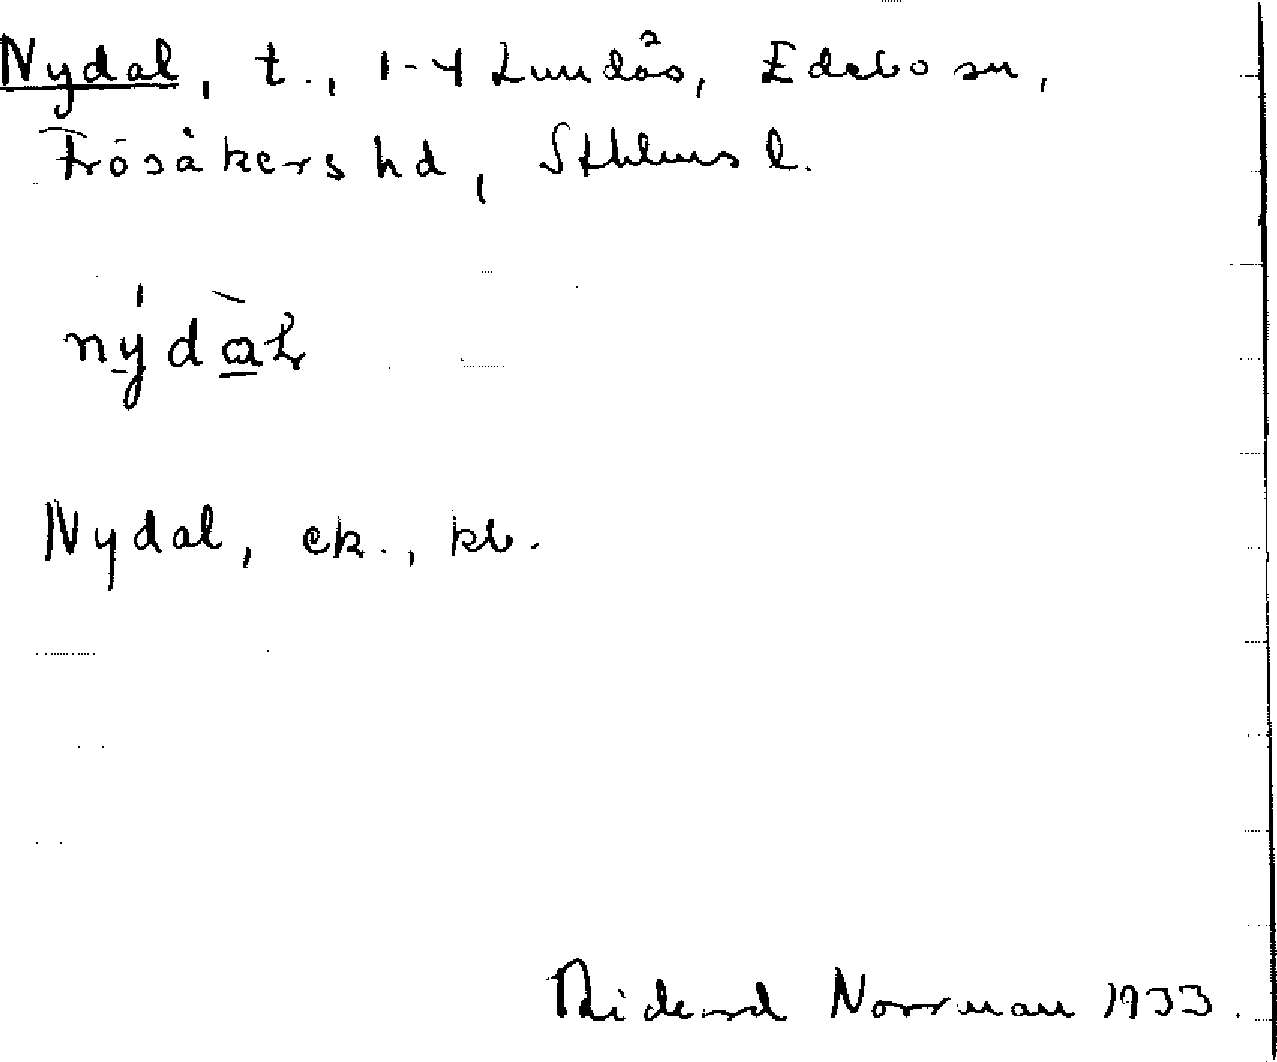 Nydal, t., 1-4 Lundås, Edebo sn,
Frösåkers hd, Sthlms l.
nýdàł
Nydal, ek., kb.
Rickard Norrman 1933.